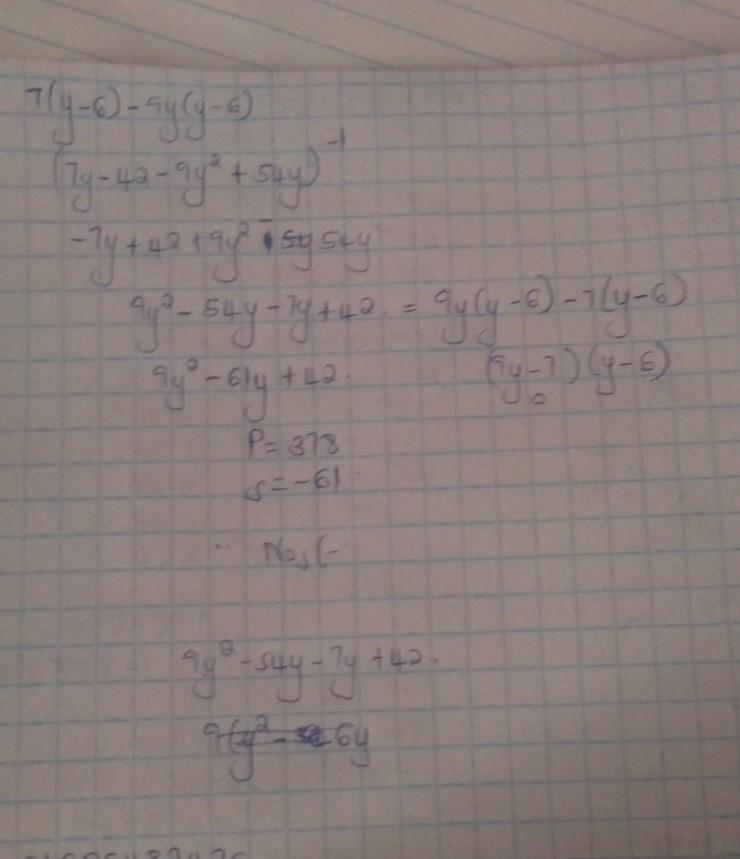 7(y-6)-9y(y-6)
(7y-42-9y²+54y)⁻¹
-7y+42+9y²-54y
9y²-54y-7y+42. = 9y(y-6)-7(y-6)
9y²-61y+42. (9y-7)(y-6)
P=378
S=-61
Nos(-
9y²-54y-7y+42.
9(y²-6y